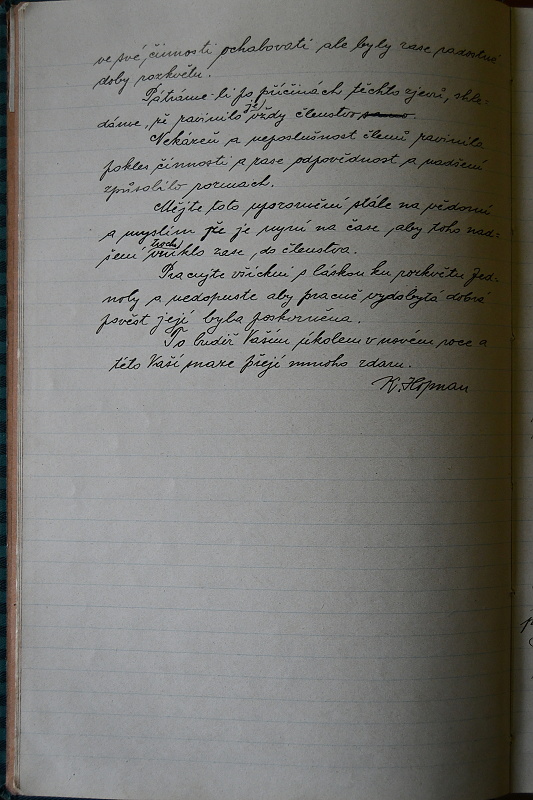 ve své činnosti ochabovati ale byly zase radostné
doby rozkvětu.
Pátráme-li po příčinách těchto zjevů, shle-
dáme, že zavinilo je vždy členstvo samo.
Nekázeň a neposlušnost členů zavinila
pokles činnosti a zase odpovědnost a nadšení
způsobilo rozmach.
Mějte toto upozornění stále na vědomí
a myslím že je nyní na čase, aby toho nad-
šení trochu vniklo zase do členstva.
Pracujte všichni s láskou ku rozkvětu Jed-
noty a nedopusťte aby pracně vydobytá dobrá
pověst její byla poskvrněna.
To budiž Vaším úkolem v novém roce a
této Vaší snaze přeji mnoho zdaru.
K. Hofman